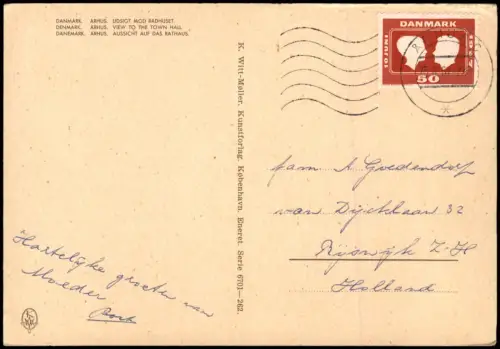 DANMARK. ÅRHUS. UDSIGT MOD RÅDHUSET.
DENMARK. ÅRHUS. VIEW TO THE TOWN HALL.
DÄNEMARK. ÅRHUS. AUSSICHT AUF DAS RATHAUS.
DANMARK
10 JUNI
1967
50
K. Witt-Møller. Kunstforlag. København. Eneret. Serie 6701-262.
fam A Goedendorp
van Dijcklaan 32
Rijswijk Z-H
Holland
Hartelijke groeten van
Moeder